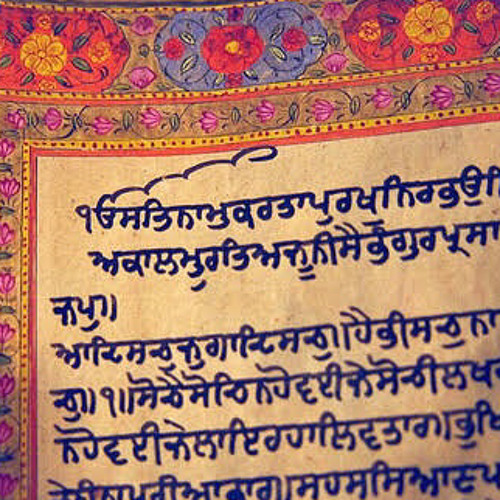 ੴਸਤਿਨਾਮੁਕਰਤਾਪੁਰਖੁਨਿਰਭਉਨਿ
ਅਕਾਲਮੂਰਤਿਅਜੂਨੀਸੈਭੰਗੁਰਪ੍ਰਸਾ
ਜਪੁ॥
ਆਦਿਸਚੁਜੁਗਾਦਿਸਚੁ॥ਹੈਭੀਸਚੁਨਾ
ਚੁ॥੧॥ਸੋਚੈਸੋਚਿਨਹੋਵਈਜੇਸੋਚੀਲਖ
ਨਹੋਵਈਜੇਲਾਇਰਹਾਲਿਵਤਾਰ॥ਭੁਖਿ
ਪੁਰੀਆਭਾਰ॥ਸਹਸਸਿਆਣਪ